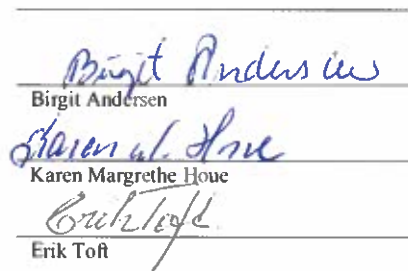 Birgit Andersen
Birgit Andersen
Karen M. Houe
Karen Margrethe Houe
Erik Toft
Erik Toft